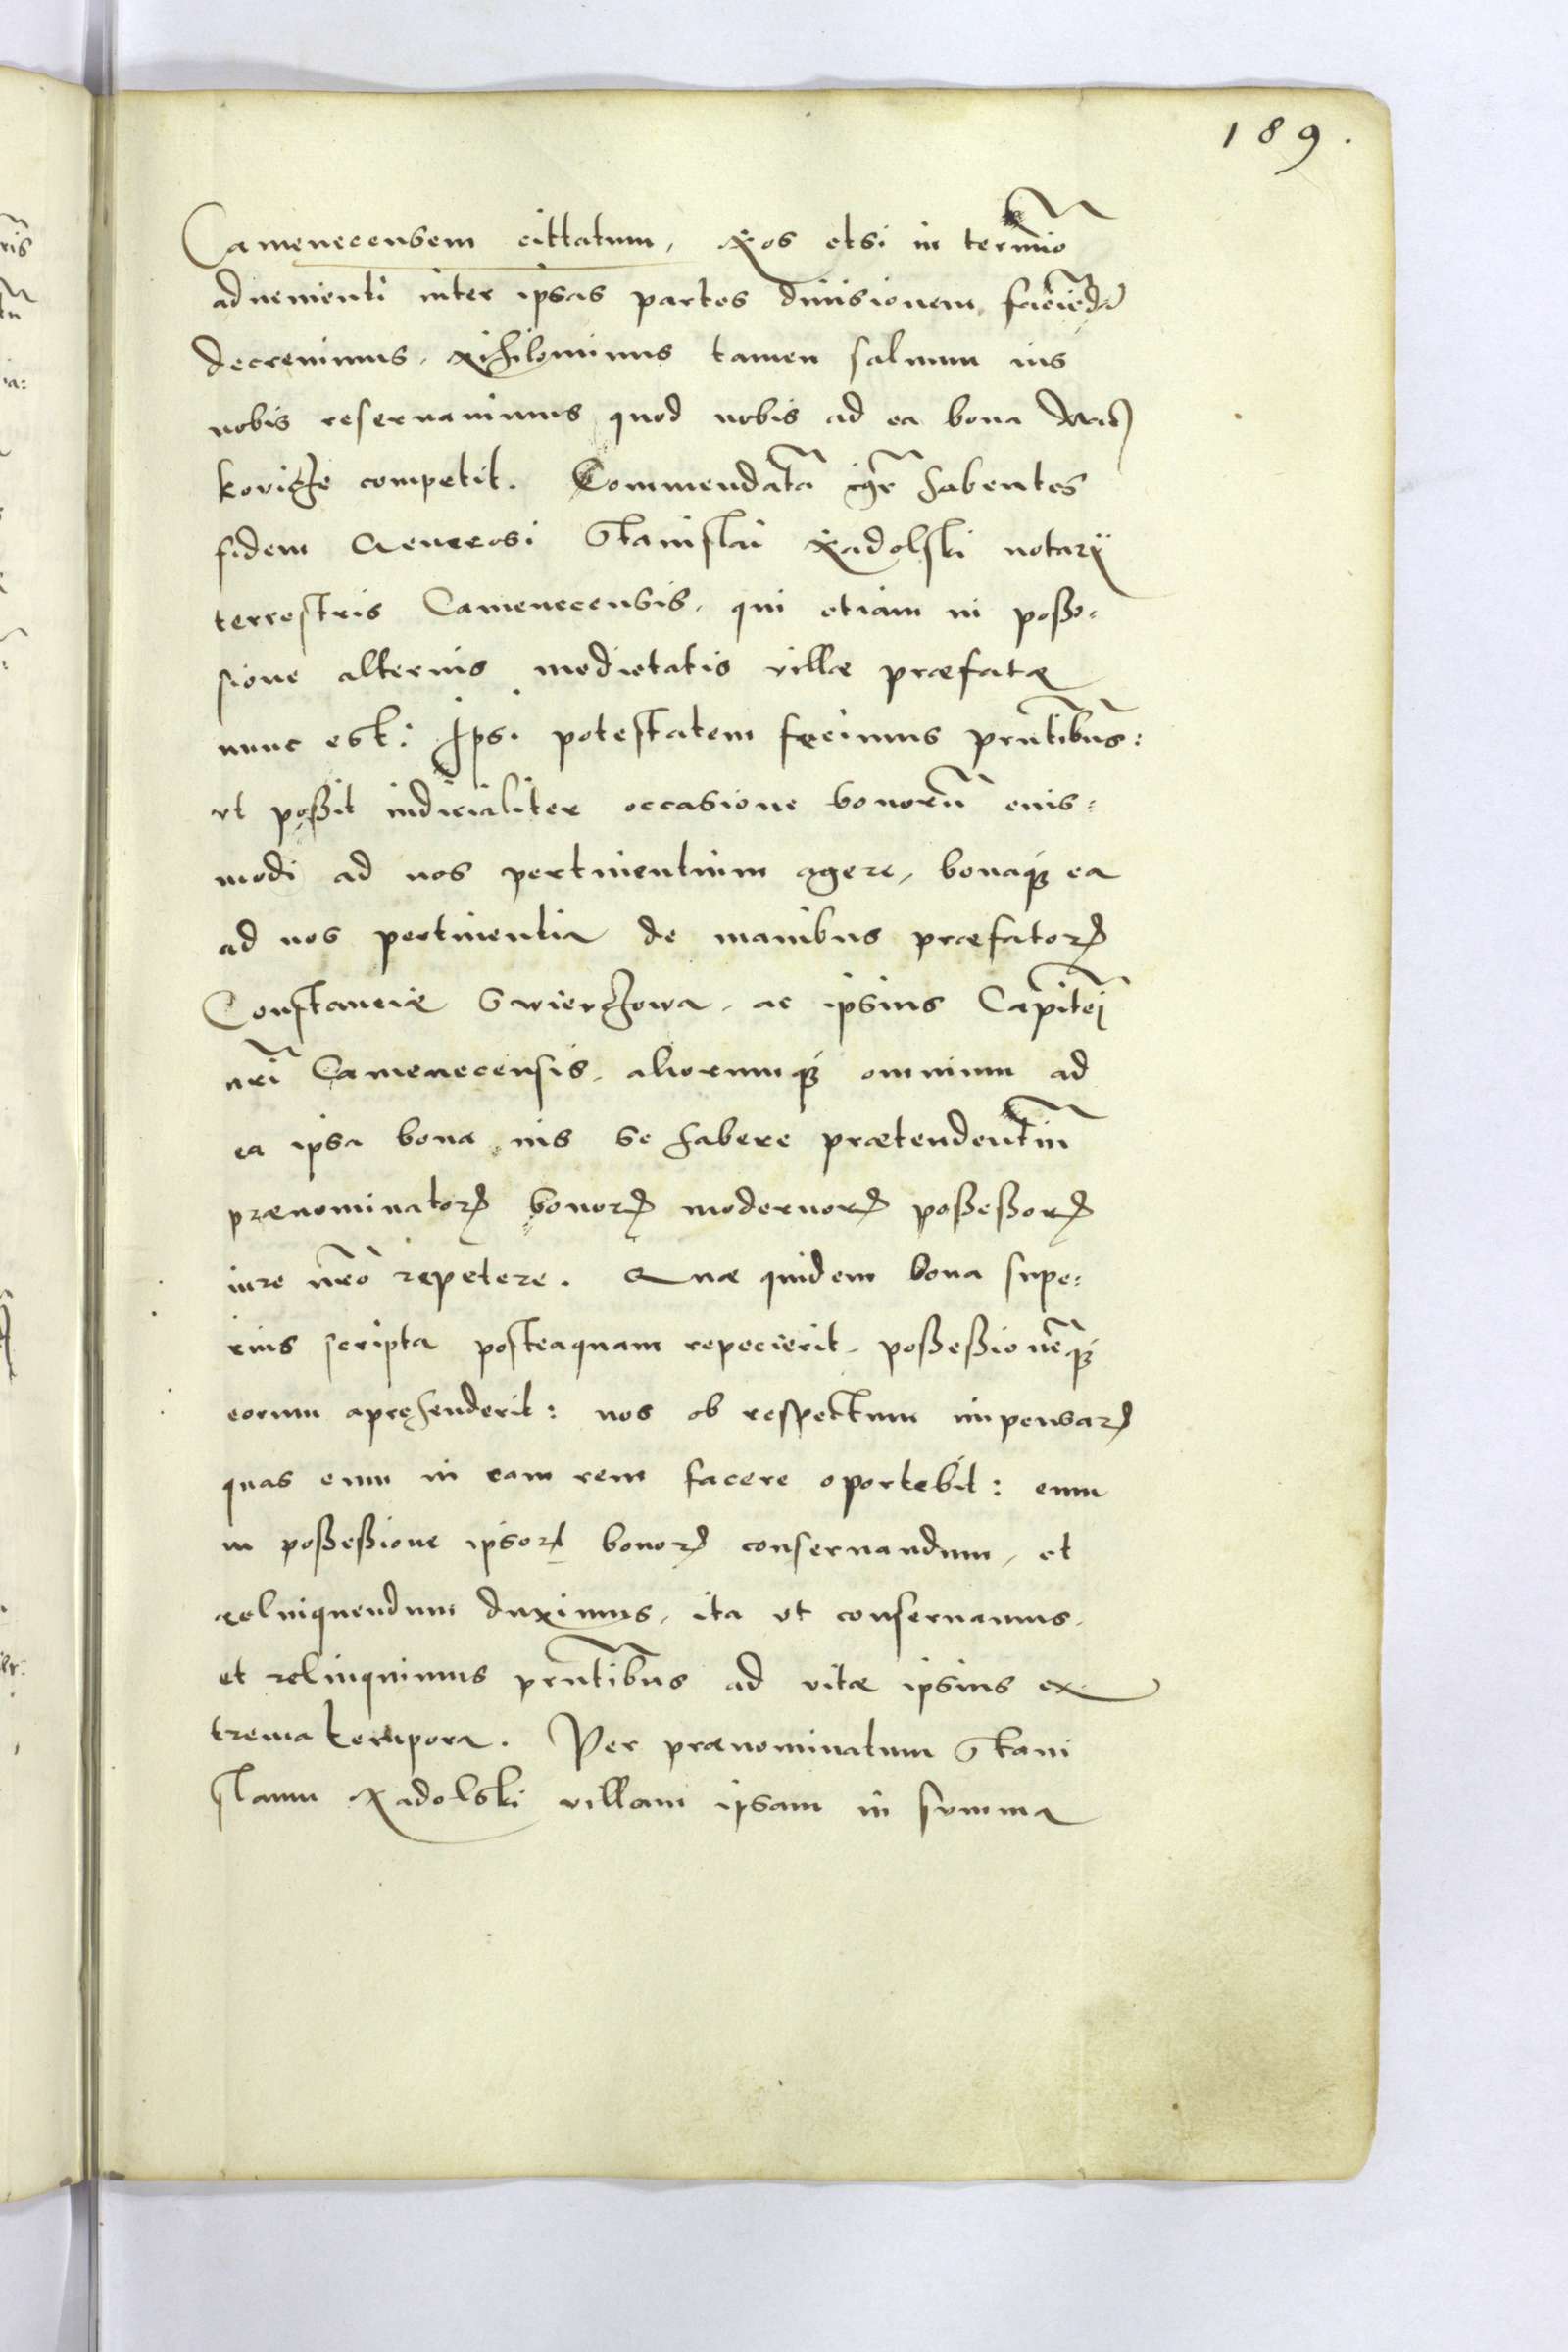 189.
Camenecensem cittatum, Nos etsi in termĩo
aduenienti inter ipsas partes diuisionem faciẽdã
decreuimus, Nihilominus tamen saluum ius
nobis reseruauimus quod nobis ad ea bona
kovicze competit. Commendatã igr̃ habentes
fidem Generosi Stanislai Nadolski notarÿ
terrestris Camenecensis, qui etiam in posse:
sione alterius medietatis villæ præfatæ
nunc est: Ipsi potestatem fecimus prñtibus:
vt possit iudicialiter occasione bonorũ euis:
modi ad nos pertinentium agere, bonaqꝫ ea
ad nos pertinentia de manibus præfatoꝝ
Constanciæ Swierchowa, ac ipsius Capitẽi
nrĩ Camenecensis, aliorumqꝫ omnium ad
ea ipsa bona ius se habere prætendentiũ
prænominatoꝝ bonoꝝ modernoꝝ possessoꝝ
iure nrõ repetere. Quæ quidem bona supe:
rius scripta posteaquam repecierit, possessionẽqꝫ
eorum aprehenderit: nos ob respectum impensaꝝ
quas eum in eam rem facere oportebit: eum
in possessione ipsoꝝ bonoꝝ conseruandum, et
relinquendum duximus, ita vt conseruamus,
et relinquimus prñtibus ad vitæ ipsius ex
trema tempora. Per prænominatum Stani
slaum Nadolski villam ipsam in summa